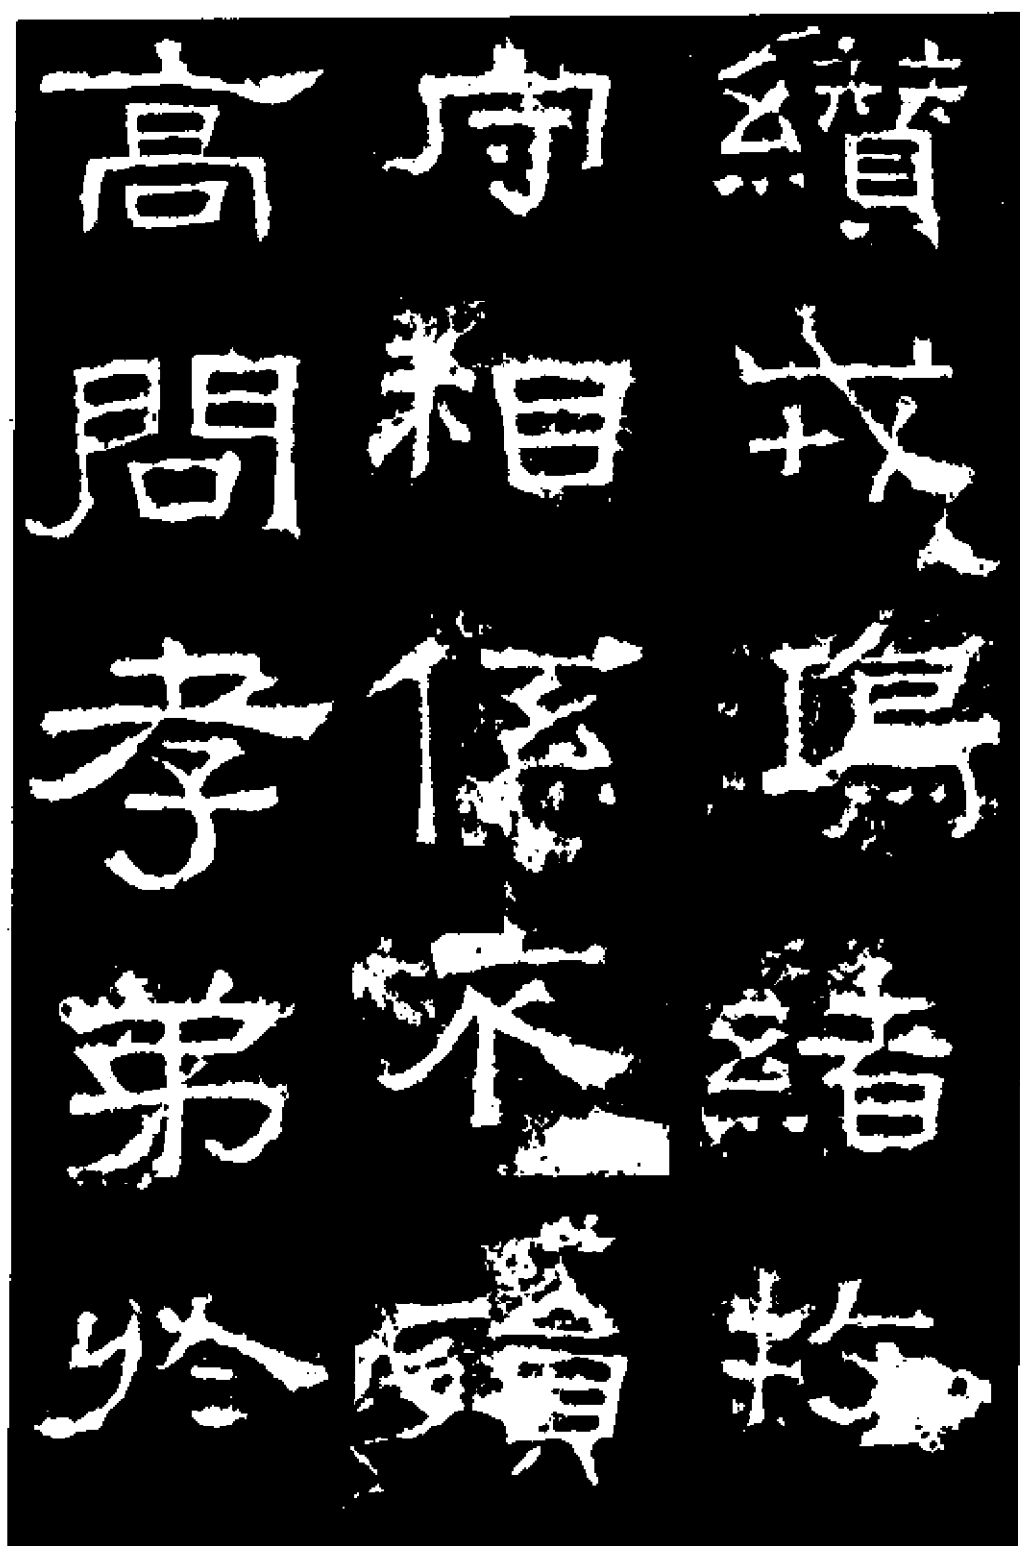 纘戎鴻緒牧
守相係不殞
高問孝弟於